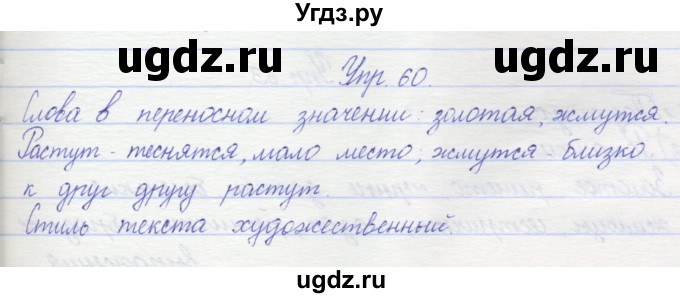 Угдз.ру
ugdz.ru ugdz.ru
Упр. 60.
Слова в переносном значении: золотая, жмутся.
Растут - теснятся, мало место; жмутся - близко
к друг другу растут.
Стиль текста художественный
ugdz.ru ugdz.ru
ugdz.ru